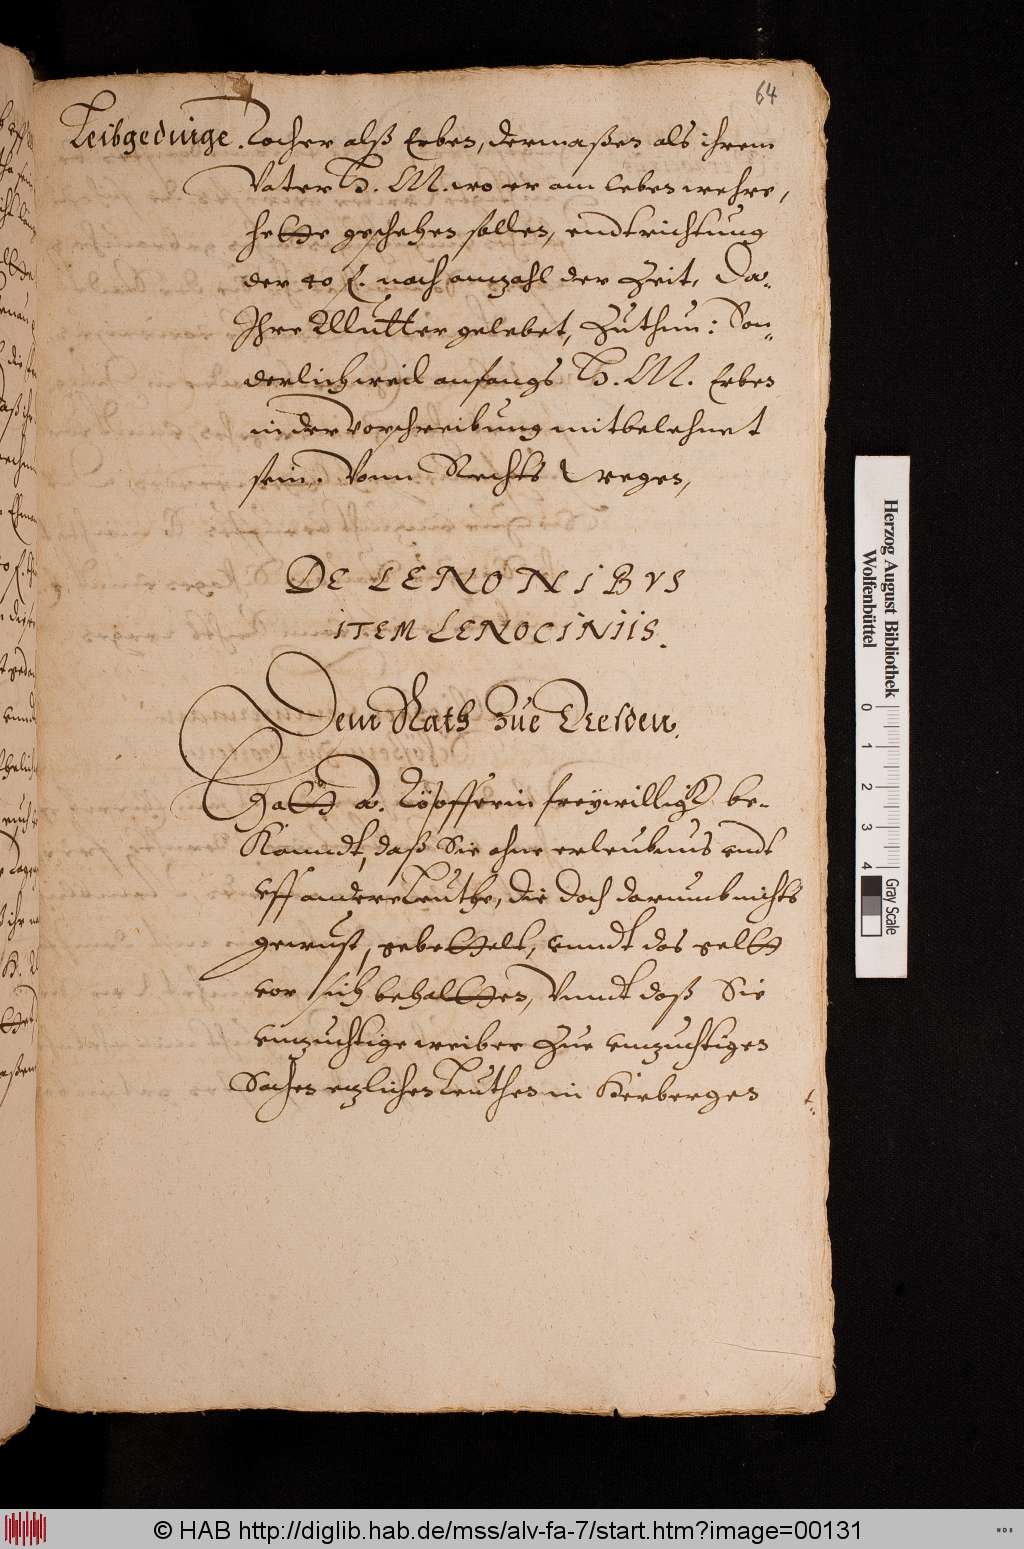 64
Leibgedinge. Tocher alß Erben, dermaßen als ihrem
Vater H. M. wo er am leben wehre,
hette geschehen sollen, endtrichtung
der 40 f. nach anzahl der Zeit, Da-
Ihre Mutter gelebet, Zuthun: Son-
derlich weil anfangs H. M. Erben
in der vorschreibung mitbelehnet
sein. Vonn Rechts wegen,
DE LENONIBVS
ITEM LENOCINIIS.
Dem Rath zue Dresden.
Hatt a. freywillig be-
Kanndt, daß Sie ohne erleubnus undt
uff andere Leuthe, die doch darumb nichts
gewust, gebettelt, unndt das gelt
vor sich behalten, Vnndt daß Sie
unzuchtige weiber Zue unzuchtigen
Sachen etzlichen Leuthen in Herbergen
Herzog August Bibliothek
Wolfenbüttel
0 1 2 3 4
Gray Scale
© HAB http://diglib.hab.de/mss/alv-fa-7/start.htm?image=00131